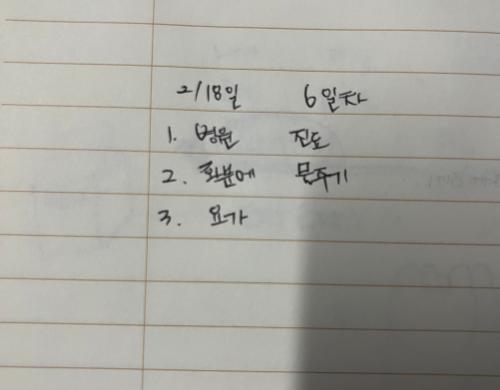 2/18일 6일차
1. 병원 진도
2. 화분에 물주기
3. 요가